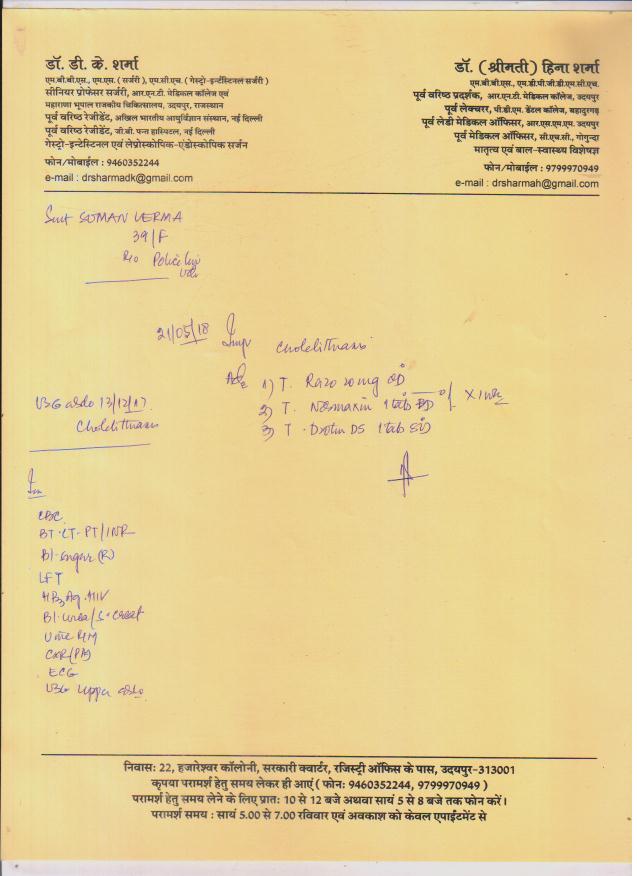 डॉ. डी. के. शर्मा
एम.बी.बी.एस., एम.एस. ( सर्जरी ), एम.सी.एच. ( गेस्ट्रो-इन्टेंस्टिनल सर्जरी )
सीनियर प्रोफेसर सर्जरी, आर.एन.टी. मेडिकल कॉलेज एवं
महाराणा भूपाल राजकीय चिकित्सालय, उदयपुर, राजस्थान
पूर्व वरिष्ठ रेजीडेंट, अखिल भारतीय आयुर्विज्ञान संस्थान, नई दिल्ली
पूर्व वरिष्ठ रेजीडेंट, जी.बी. पन्त हास्पिटल, नई दिल्ली
गेस्ट्रो-इन्टेस्टिनल एवं लेप्रोस्कोपिक-एंडोस्कोपिक सर्जन
फोन/मोबाईल : 9460352244
e-mail : drsharmadk@gmail.com
डॉ. (श्रीमती) हिना शर्मा
एम.बी.बी.एस., एम.डी.पी.जी.डी.एम.सी.एच.
पूर्व वरिष्ठ प्रदर्शक, आर.एन.टी. मेडिकल कॉलेज, उदयपुर
पूर्व लेक्चरर, पी.डी.एम. डेंटल कॉलेज, बहादुरगढ़
पूर्व लेडी मेडिकल ऑफिसर, आर.एस.एम.एम. उदयपुर
पूर्व मेडिकल ऑफिसर, सी.एच.सी., गोगुन्दा
मातृत्व एवं बाल-स्वास्थ्य विशेषज्ञ
फोन/मोबाईल : 9799970949
e-mail : drsharmah@gmail.com
Smt SUMAN VERMA
39/F
R/o Police
21/05/18 Imp Cholelithiasis
Adv 1) T. Razo 20mg OD
2) T. Normaxin 1 tab
3) T. Drotin DS 1 tab
USG abdo 13/12/17
Cholelithiasis
Inv
CBC
BT-CT-PT/INR
Bl-sugar (R)
LFT
HBsAg HIV
Bl-urea/S-creat
Urine R/M
CXR (PA)
ECG
USG upper abdo
निवासः 22, हजारेश्वर कॉलोनी, सरकारी क्वार्टर, रजिस्ट्री ऑफिस के पास, उदयपुर-313001
कृपया परामर्श हेतु समय लेकर ही आएं ( फोनः 9460352244, 9799970949 )
परामर्श हेतु समय लेने के लिए प्रातः 10 से 12 बजे अथवा सायं 5 से 8 बजे तक फोन करें।
परामर्श समय : सायं 5.00 से 7.00 रविवार एवं अवकाश को केवल एपाईंटमेंट से